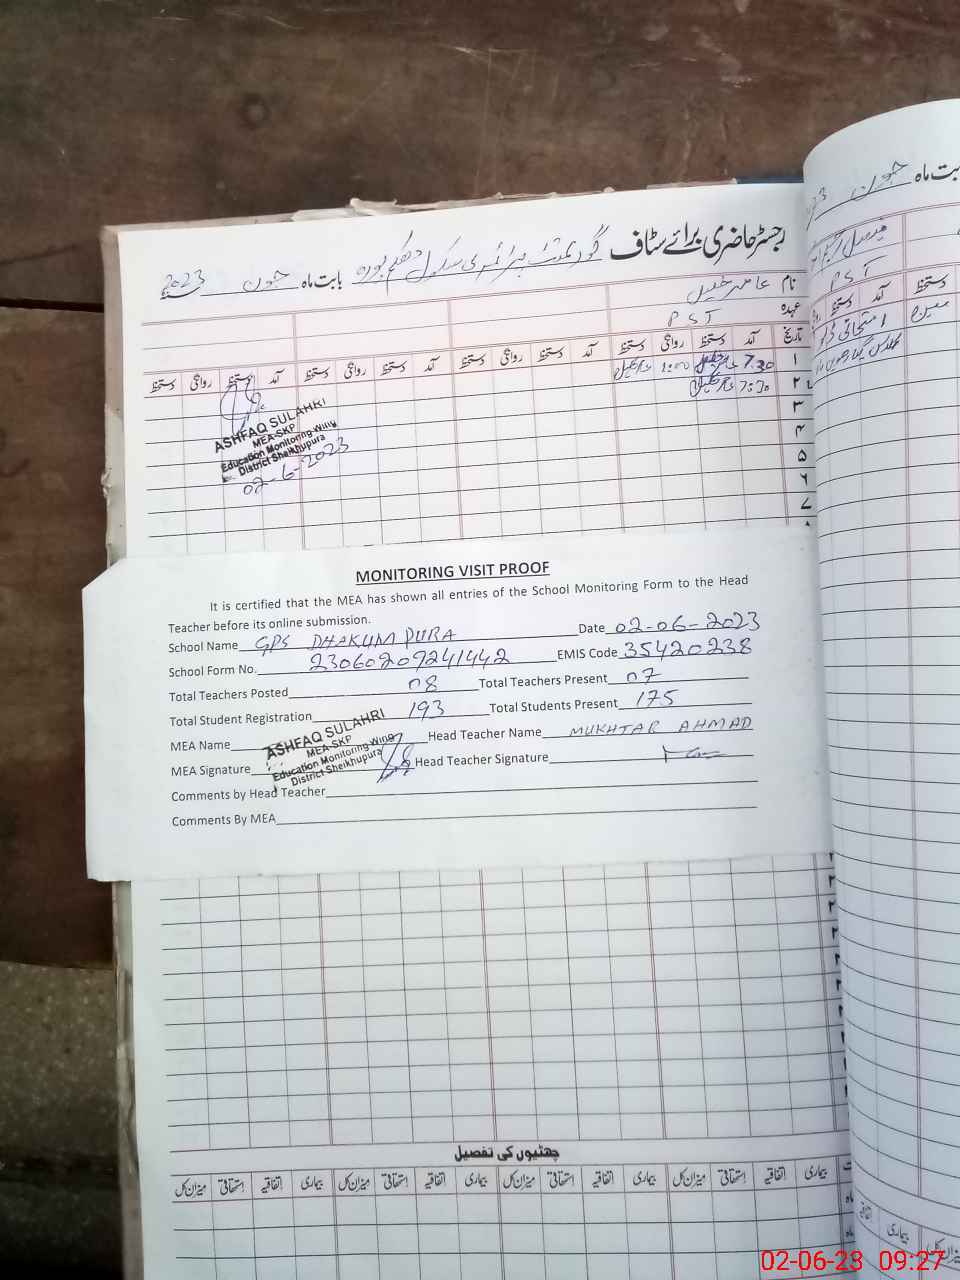 رجسٹر حاضری برائے سٹاف گورنمنٹ پرائمری سکول ڈھکم پورہ بابت ماہ جون 2023
نام عامر
عہدہ PST
تاریخ آمد دستخط روانگی دستخط آمد دستخط روانگی دستخط آمد دستخط روانگی دستخط
۱ 7.30 1:00
۲ 7:30
۳
۴
۵
۶
۷
ASHFAQ SULAHRI
MEA-SKP
Education Monitoring Wing
District Sheikhupura
02-6-2023
بابت ماہ جون
فیصل
PST
آمد دستخط
دستخط
MONITORING VISIT PROOF
It is certified that the MEA has shown all entries of the School Monitoring Form to the Head
Teacher before its online submission.
School Name GPS DHAKUM PURA Date 02-06-2023
School Form No. 23060209241442 EMIS Code 35420238
Total Teachers Posted 08 Total Teachers Present 07
Total Student Registration 193 Total Students Present 175
MEA Name Head Teacher Name MUKHTAR AHMAD
ASHFAQ SULAHRI
MEA-SKP
Education Monitoring Wing
District Sheikhupura
MEA Signature Head Teacher Signature
Comments by Head Teacher
Comments By MEA
چھٹیوں کی تفصیل
بیماری اتفاقیہ استحقاقی میزان کل بیماری اتفاقیہ استحقاقی میزان کل بیماری اتفاقیہ استحقاقی میزان کل بیماری اتفاقیہ استحقاقی میزان کل
02-06-23 09:27